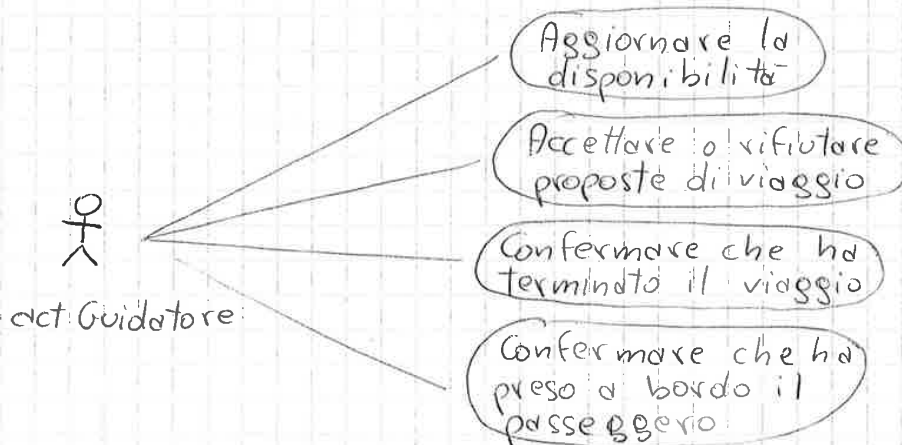 Aggiornare la
disponibilità
Accettare o rifiutare
proposte di viaggio
act Guidatore
Confermare che ha
terminato il viaggio
Confermare che ha
preso a bordo il
passeggero